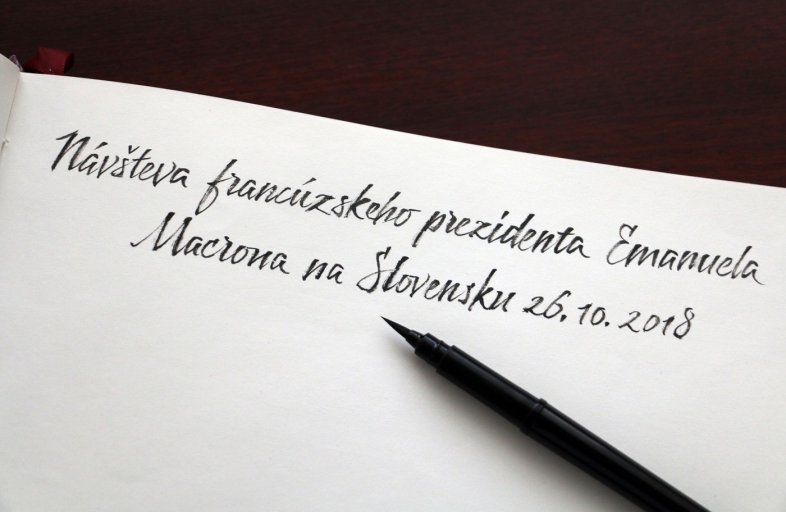 Návšteva francúzskeho prezidenta Emanuela
Macrona na Slovensku 26.10.2018